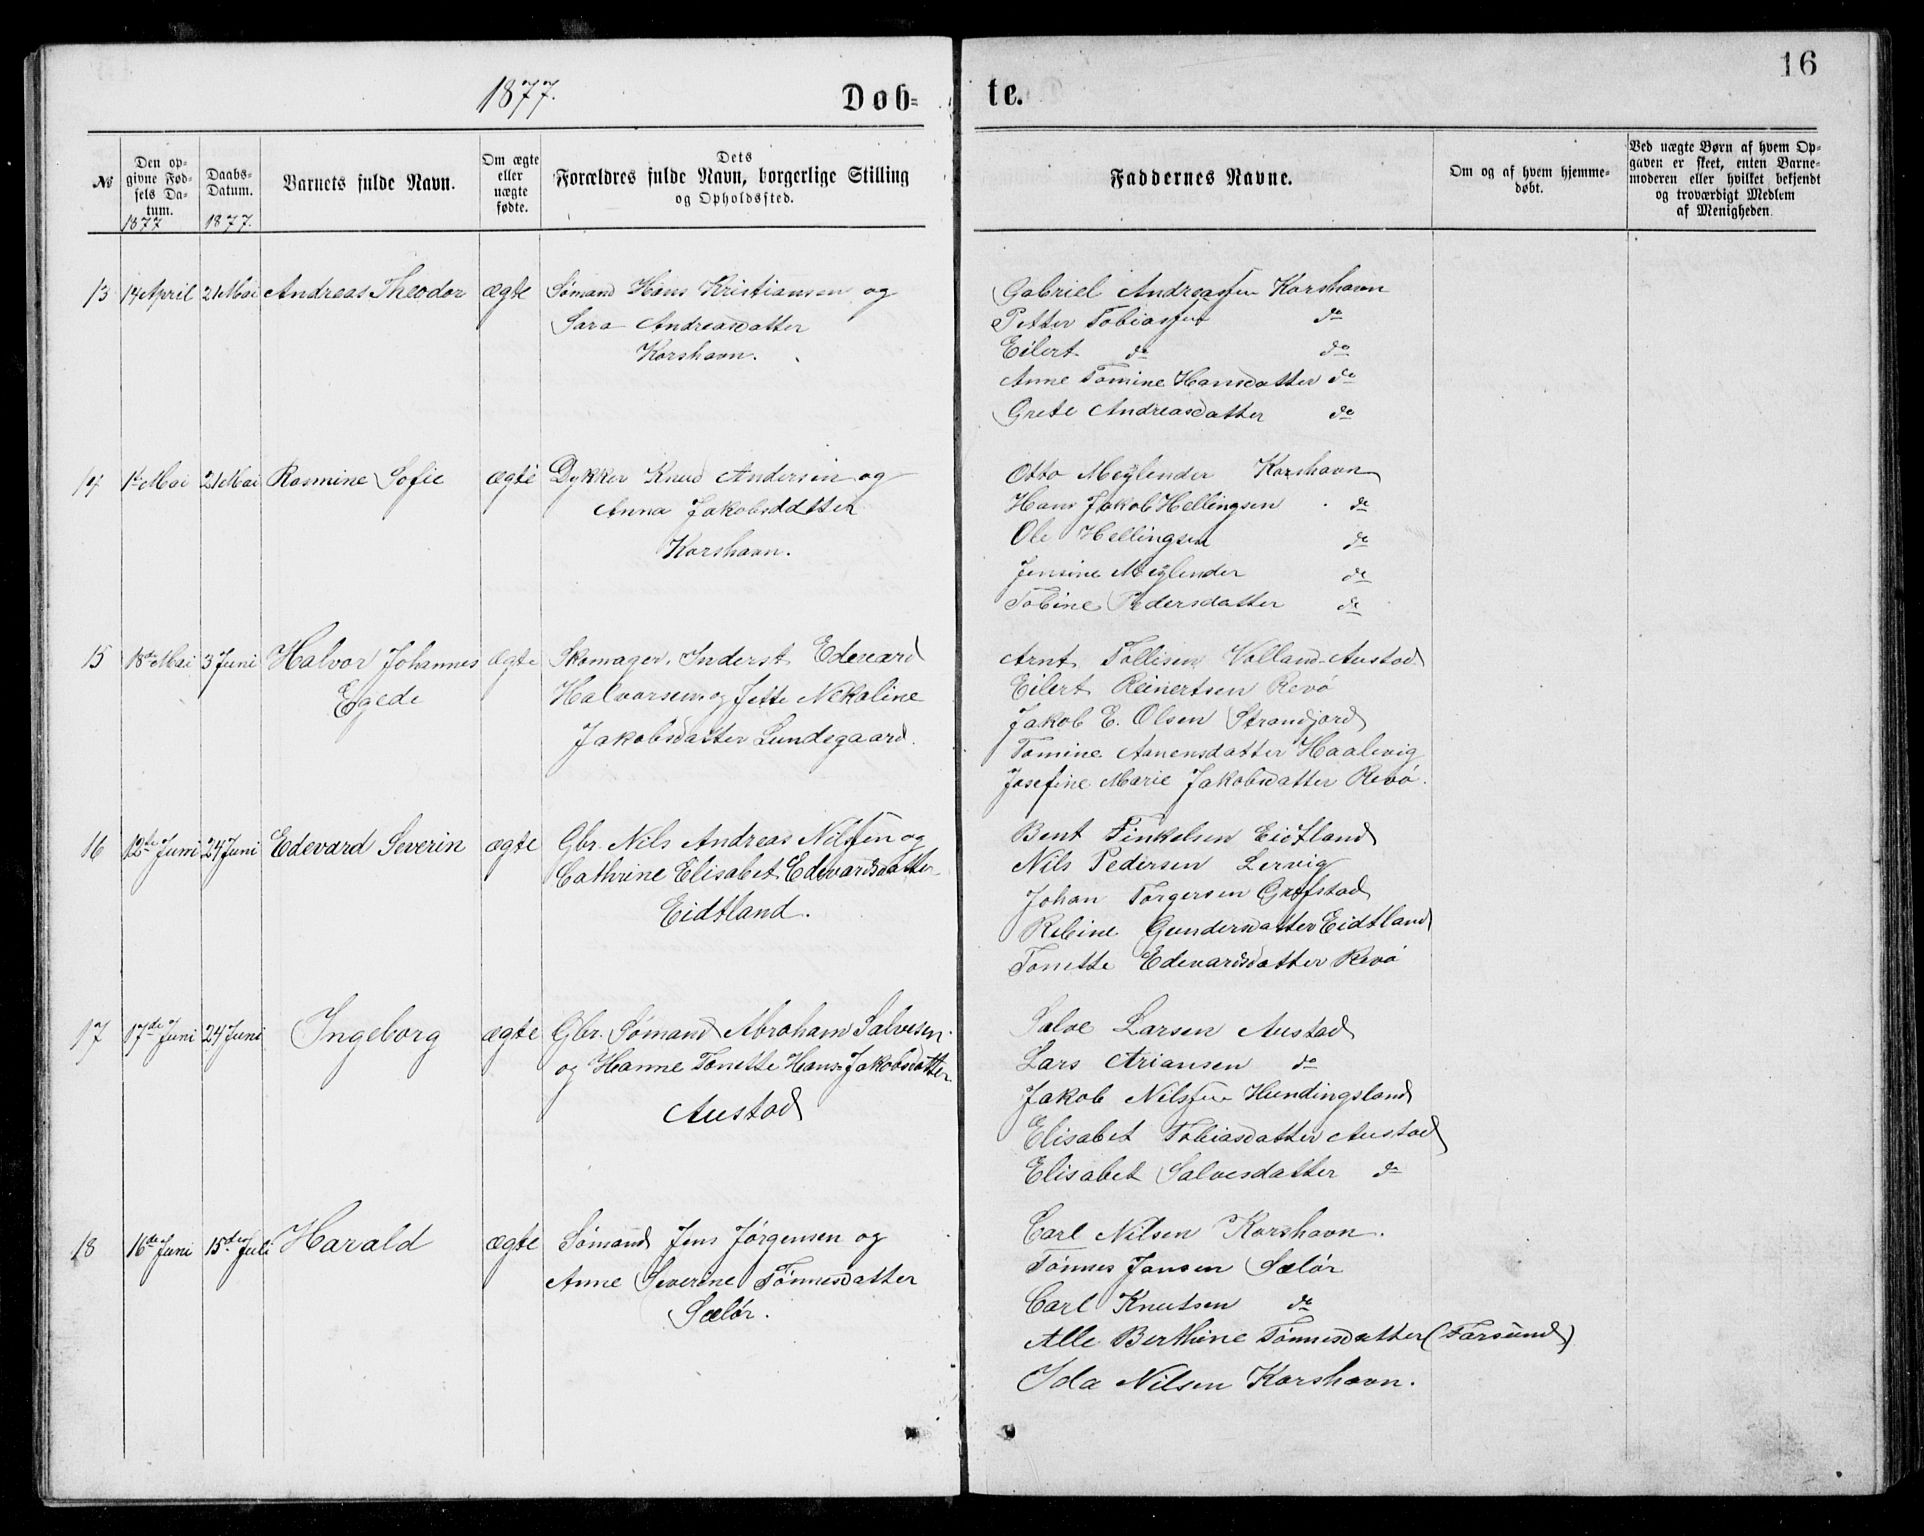 16
1877.
Døb-
te.
№
Den op-
givne Fød-
sels Da-
tum.
1877
Daabs-
Datum.
1877.
Barnets fulde Navn.
Om ægte
eller
uægte
fødte.
Dets
Forældres fulde Navn, borgerlige Stilling
og Opholdssted.
Faddernes Navne.
Om og af hvem hjemme-
døbt.
Ved uægte Børn af hvem Op-
gaven er skeet, enten Barne-
moderen eller hvilket bekjendt
og troværdigt Medlem
af Menigheden.
13 14 April 21 Mai Andreas Theodor ægte Sømand Hans Kristiansen og
Sara Andreasdatter
Korshavn.
Gabriel Andreassen Korshavn
Petter Tobiassen do
Eilert do do
Anne Tomine Hansdatter do
Grete Andreasdatter do
14 1te Mai 21 Mai Rasmine Sofie ægte Dykker Knud Andersen og
Anna Jakobsdatter
Korshavn.
Otto Meylender Korshavn
Hans Jakob Hellingsen do
Ole Hellingsen do
Jensine Meylender do
Tobine Pedersdatter do
15 18de Mai 3 Juni Halvor Johannes ægte Skomager. Inderst. Edevard
Egede
Halvorsen og Jette Nekoline
Jakobsdatter Lundegaard.
Arnt Tollisen Volland Austad
Eilert Reinertsen Revø
Jakob E. Olsen Strandjord
Tomine Aanensdatter Haalevig
Josefine Marie Jakobsdatter Revø.
16 12te Juni 24 Juni Edevard Severin ægte Gbr. Nils Andreas Nilssen og
Cathrine Elisabet Edevardsdatter
Eidtland.
Bent Finkelsen Eidtland
Nils Pedersen Lervig
Johan Torgersen Grøfstad
Rebine Gundersdatter Eidtland
Tonette Edevardsdatter Revø
17 17de Juni 24 Juni Ingeborg ægte Gbr. Sømand Abraham Salvesen
og Hanne Tonette Hans-Jakobsdatter
Austad
Salve Larsen Austad
Lars Ariansen do
Jakob Nilssen Hundingsland
Elisabet Tobiasdatter Austad
Elisabet Salvesdatter do
18 16de Juni 15de Juli Harald ægte Sømand Jens Jørgensen og
Anne Severine Tønnesdatter
Sælør.
Carl Nilsen Korshavn.
Tønnes Jansen Sælør
Carl Knutsen do
Alle Berthine Tønnesdatter (Farsund)
Ida Nilsen Korshavn.